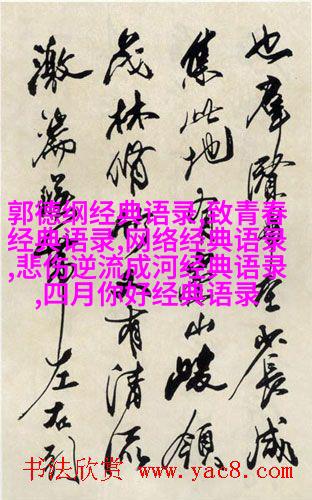 也羣賢畢至少長咸
集此地有崇山峻領
茂林脩竹又有清流
激湍暎帶左右引
郭德纲经典语录,致青春
经典语录,网络经典语录
,悲伤逆流成河经典语录
,四月你好经典语录
书法欣赏 www.yac8.com